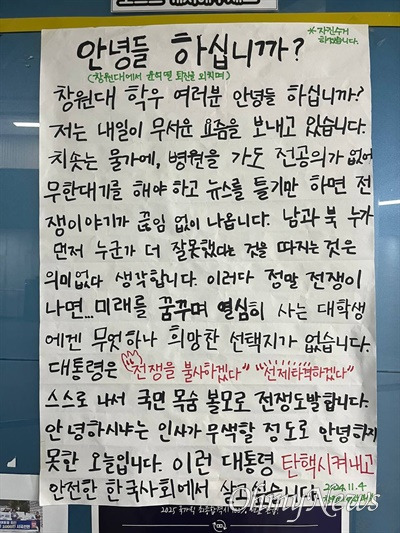 안녕들 하십니까?
*자진수거
하겠습니다.
(창원대에서 윤석열 퇴진을 외치며)
창원대 학우 여러분 안녕들 하십니까?
저는 내일이 무서운 요즘을 보내고 있습니다.
치솟는 물가에, 병원을 가도 전공의가 없어
무한대기를 해야 하고 뉴스를 틀기만 하면 전
쟁이야기가 끊임 없이 나옵니다. 남과 북 누가
먼저 누군가 더 잘못했다는 것을 따지는 것은
의미없다 생각합니다. 이러다 정말 전쟁이
나면... 미래를 꿈꾸며 열심히 사는 대학생
에겐 무엇하나 희망찬 선택지가 없습니다.
대통령은 "전쟁을 불사하겠다" "선제타격하겠다"
스스로 나서 국민 목숨 볼모로 전쟁도발합니다.
안녕하시냐는 인사가 무색할 정도로 안녕하지
못한 오늘입니다. 이런 대통령 탄핵시켜내고
안전한 한국사회에서 살고싶습니다.
2024.11.4
OhmyNews
2025